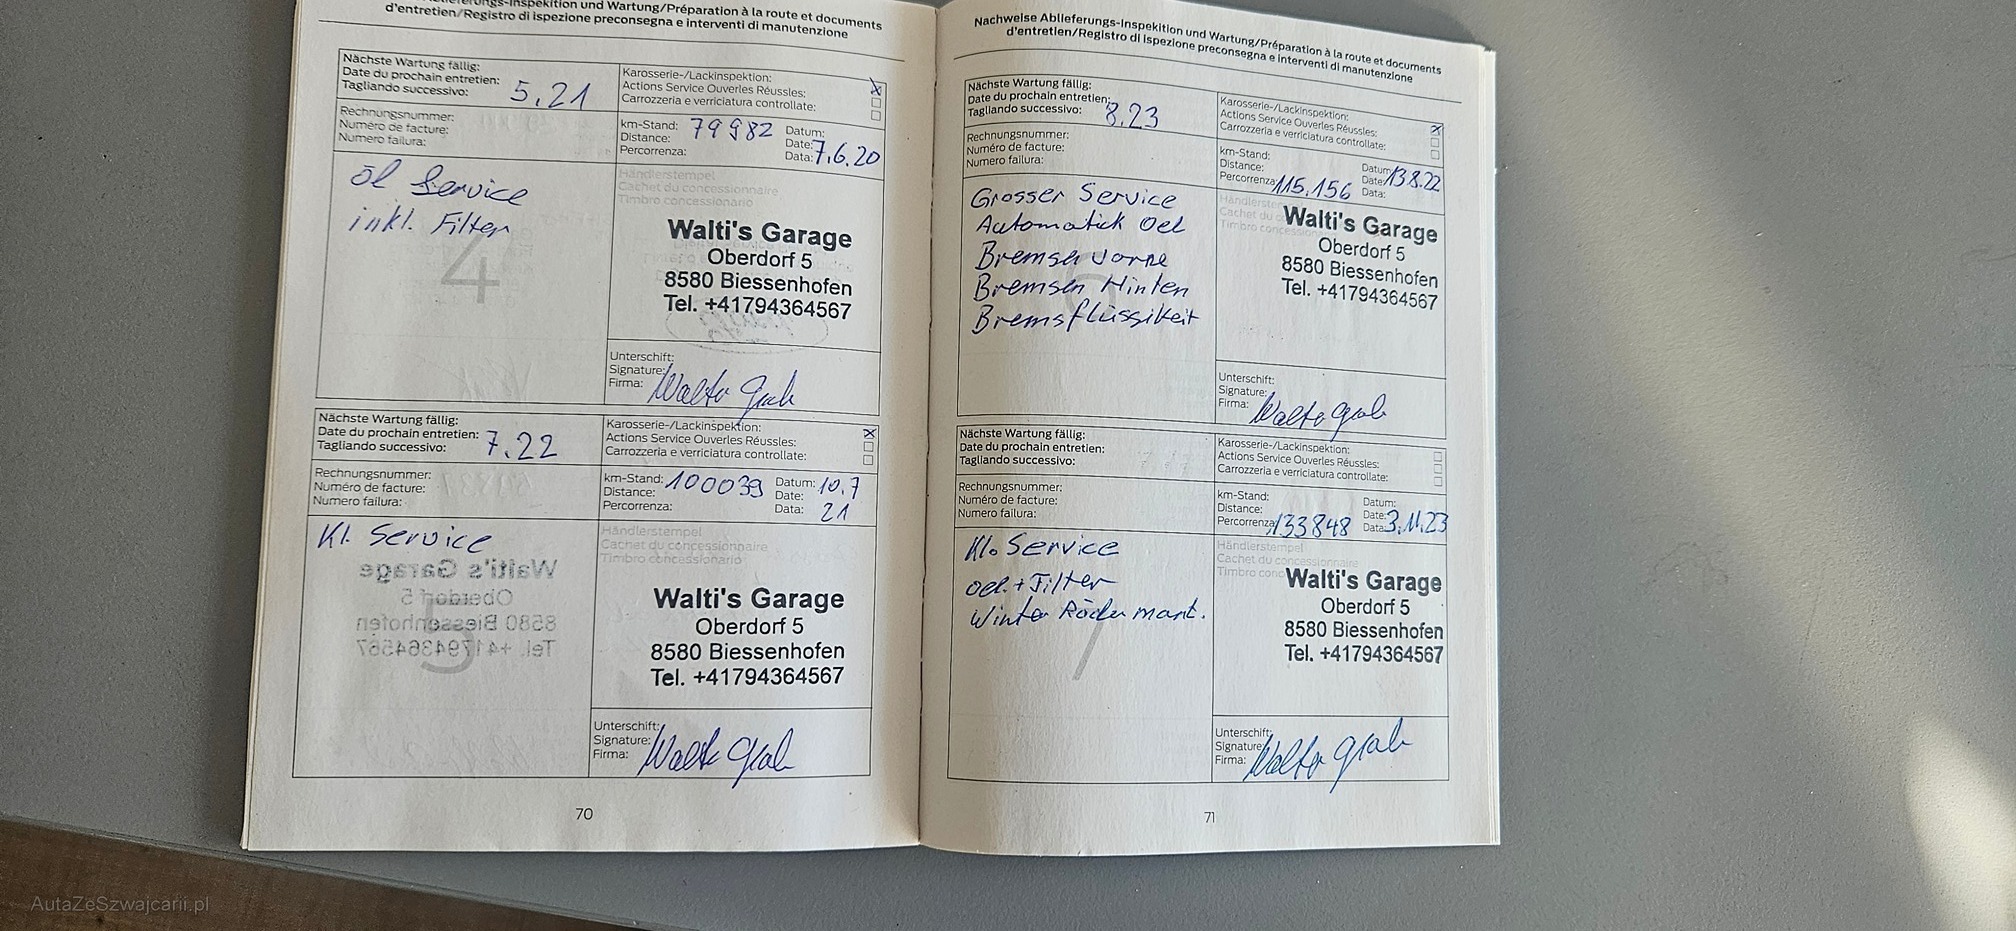 Ablieferungs-Inspekition und Wartung/Préparation à la route et documents
d'entretien/Registro di ispezione preconsegna e interventi di manutenzione
Nächste Wartung fällig:
Date du prochain entretien:
Tagliando successivo:
5.21
Karosserie-/Lackinspektion:
Actions Service Ouverles Réussles:
Carrozzeria e verriciatura controllate:
Rechnungsnummer:
Numéro de facture:
Numero failura:
km-Stand: 79982
Distance:
Percorrenza:
Datum:
Date: 7.6.20
Data:
öl Service
inkl. Filter
4
Händlerstempel
Cachet du concessionnaire
Timbro concessionario
Walti's Garage
Oberdorf 5
8580 Biessenhofen
Tel. +41794364567
Unterschift:
Signature:
Firma:
Walter Grab
Nächste Wartung fällig:
Date du prochain entretien:
Tagliando successivo:
7.22
Karosserie-/Lackinspektion:
Actions Service Ouverles Réussles:
Carrozzeria e verriciatura controllate:
Rechnungsnummer:
Numéro de facture:
Numero failura:
km-Stand: 100039
Distance:
Percorrenza:
Datum: 10.7
Date:
Data: 21
Kl. Service
5
Händlerstempel
Cachet du concessionnaire
Timbro concessionario
Walti's Garage
Oberdorf 5
8580 Biessenhofen
Tel. +41794364567
Unterschift:
Signature:
Firma:
Walter Grab
70
Nachweise Ablieferungs-Inspekition und Wartung/Préparation à la route et documents
d'entretien/Registro di ispezione preconsegna e interventi di manutenzione
Nächste Wartung fällig:
Date du prochain entretien:
Tagliando successivo:
8.23
Karosserie-/Lackinspektion:
Actions Service Ouverles Réussles:
Carrozzeria e verriciatura controllate:
Rechnungsnummer:
Numéro de facture:
Numero failura:
km-Stand:
Distance:
Percorrenza: 115.156
Datum:
Date: 13.8.22
Data:
Grosser Service
Automatick Oel
Bremsen vorne
Bremsen Hinten
Bremsflüssikeit
6
Cachet du
Walti's Garage
Oberdorf 5
8580 Biessenhofen
Tel. +41794364567
Unterschift:
Signature:
Firma:
Walter Grab
Nächste Wartung fällig:
Date du prochain entretien:
Tagliando successivo:
Karosserie-/Lackinspektion:
Actions Service Ouverles Réussles:
Carrozzeria e verriciatura controllate:
Rechnungsnummer:
Numéro de facture:
Numero failura:
km-Stand:
Distance:
Percorrenza: 133848
Datum:
Date:
Data: 3.11.23
Kl. Service
oel. + Filter
Winter Räder mont.
7
Händlerstempel
Cachet du concessionnaire
Timbro
Walti's Garage
Oberdorf 5
8580 Biessenhofen
Tel. +41794364567
Unterschift:
Signature:
Firma:
Walter Grab
71
AutaZeSzwajcarii.pl